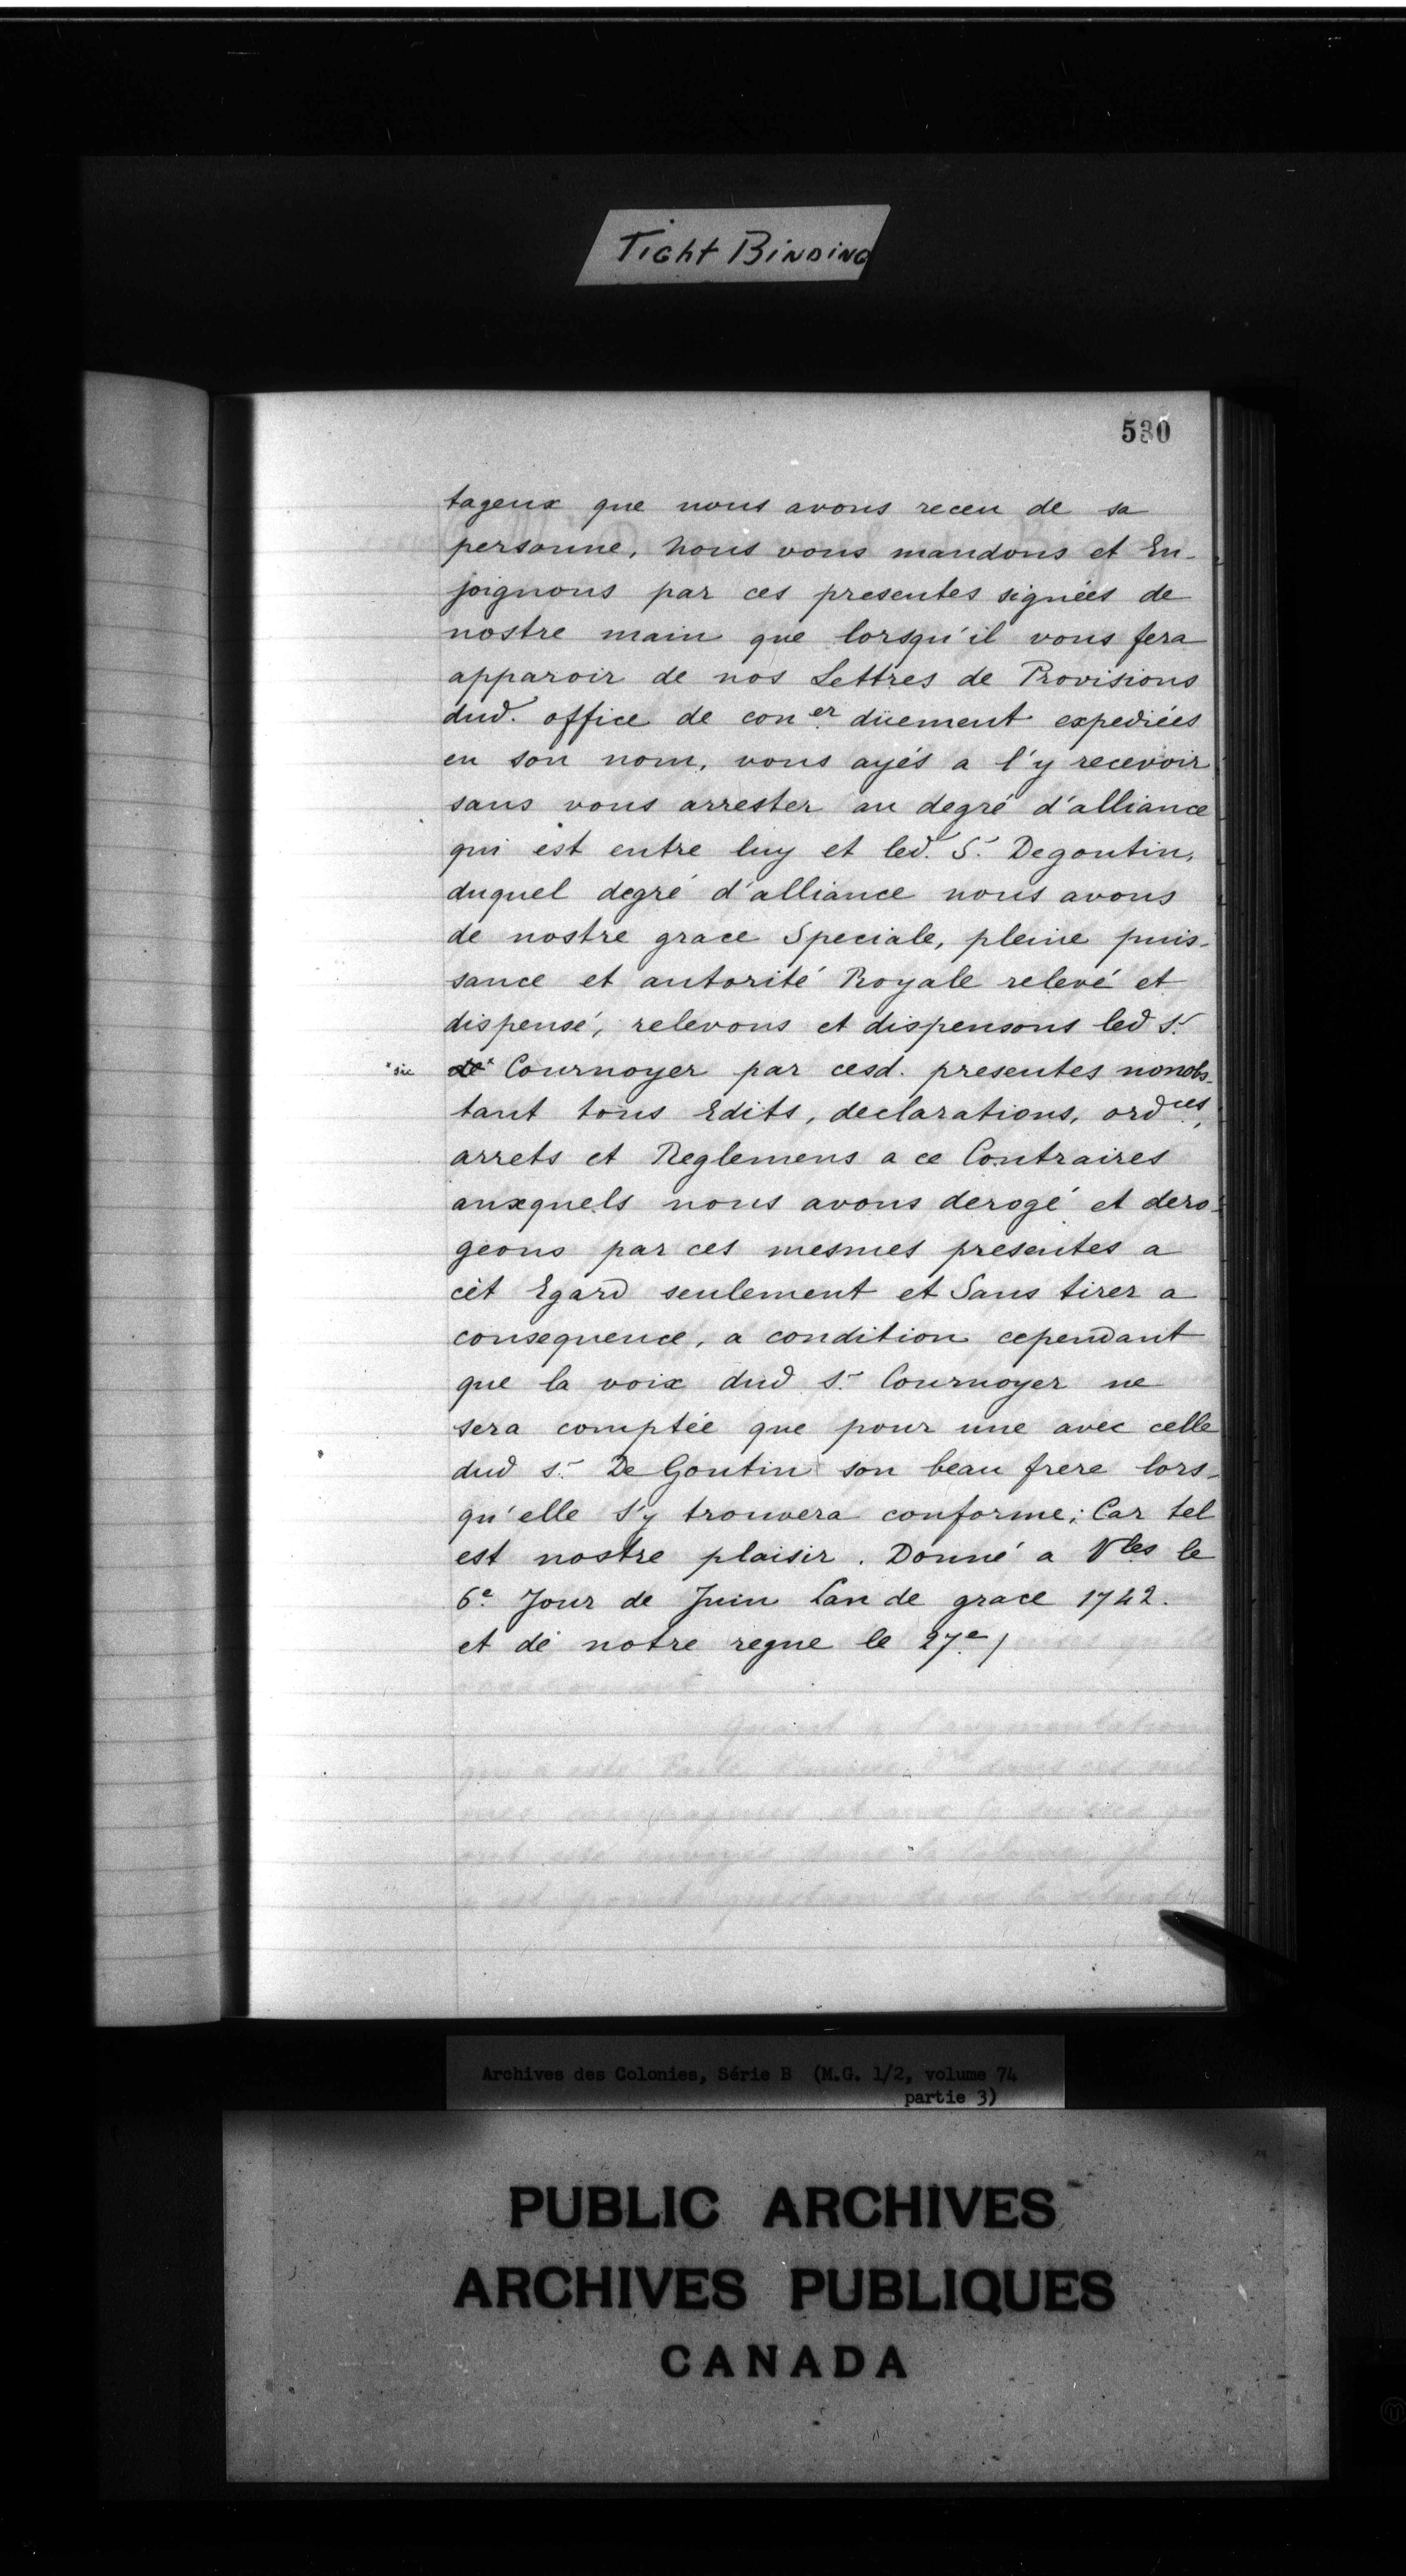 Tight Binding
530
tageux que nous avons receu de sa
personne, nous vous mandons et En-
joignons par ces presentes signées de
nostre main que lorsqu'il vous fera
apparoir de nos Lettres de Provisions
dud. office de con.er düement expediées
en son nom, vous ayés a l'y recevoir
sans vous arrester au degré d'alliance
qui est entre luy et led. S. Degoutin,
duquel degré d'alliance nous avons
de nostre grace Speciale, pleine puis-
sance et autorité Royale relevé et
dispensé, relevons et dispensons led s.
*sic de* Cournoyer par cesd. presentes nonobs-
tant tous Edits, declarations, ord.ces,
arrets et Reglemens a ce Contraires
auxquels nous avons derogé et dero-
geons par ces mesmes presentes a
cét Egard seulement et Sans tirer a
consequence, a condition cependant
que la voix dud s. Cournoyer ne
sera comptée que pour une avec celle
dud s. De Goutin son beau frere lors-
qu'elle s'y trouvera conforme; Car tel
est nostre plaisir. Donné a V.les le
6.e Jour de Juin Lan de grace 1742.
et de notre regne le 27.e /
Archives des Colonies, Série B (M.G. 1/2, volume 74
partie 3)
PUBLIC ARCHIVES
ARCHIVES PUBLIQUES
CANADA